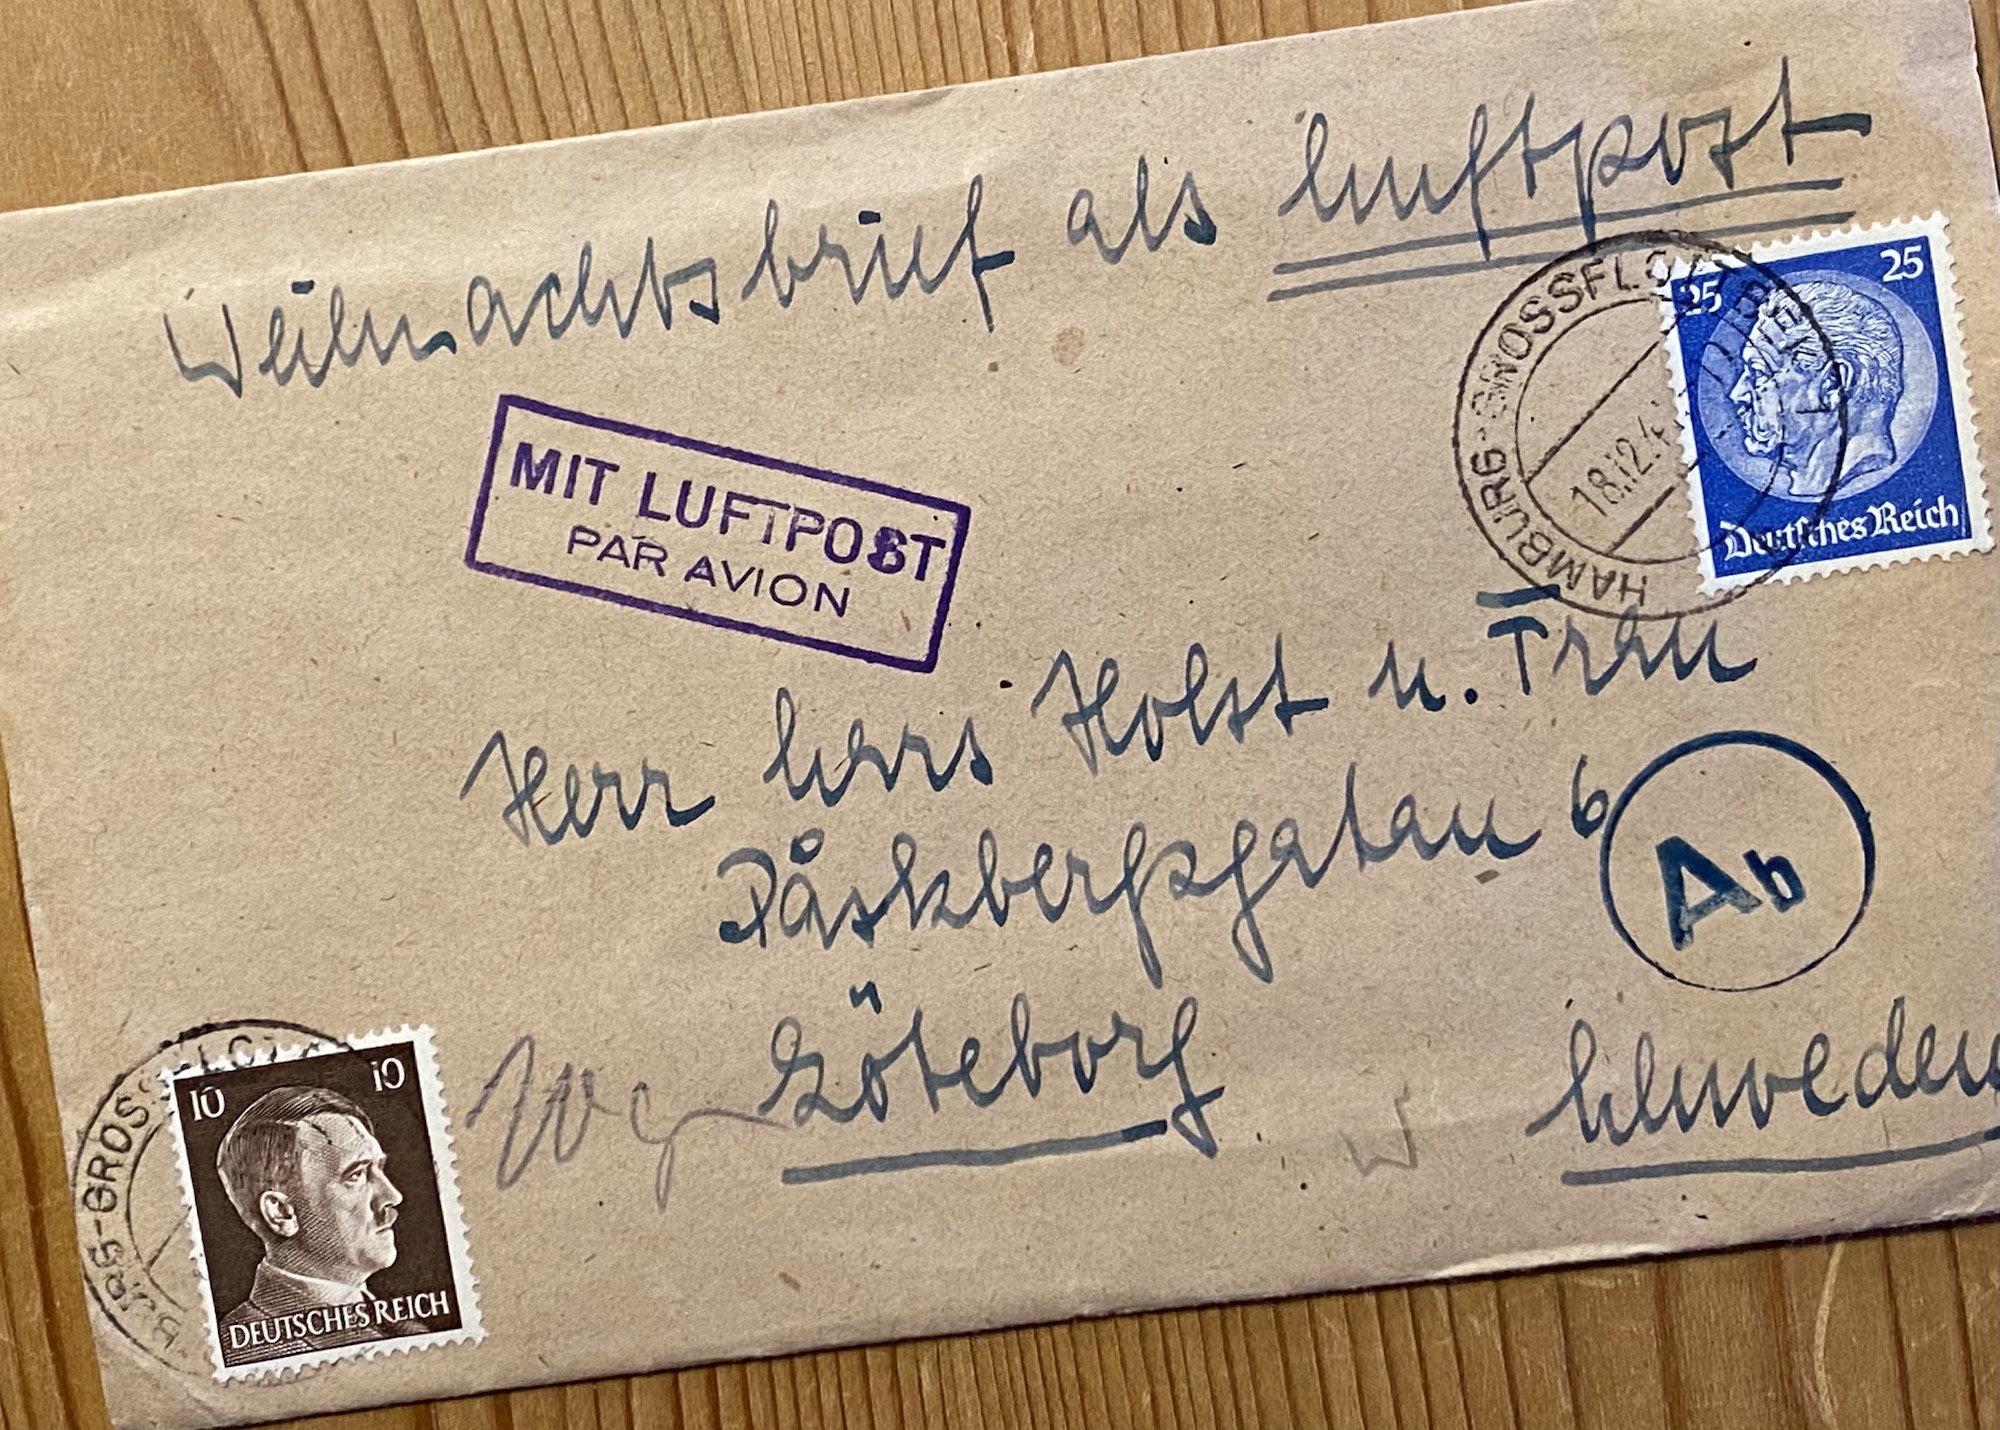 Weihnachtsbrief als Luftpost
25 25
HAMBURG-GROSSFLOTTBEK 1
18.12.4
Deutsches Reich
MIT LUFTPOST
PAR AVION
Herr Lars Holst u. Frau
Påskbergsgatan 6
Ab
Göteborg
Schweden
10 10
DEUTSCHES REICH